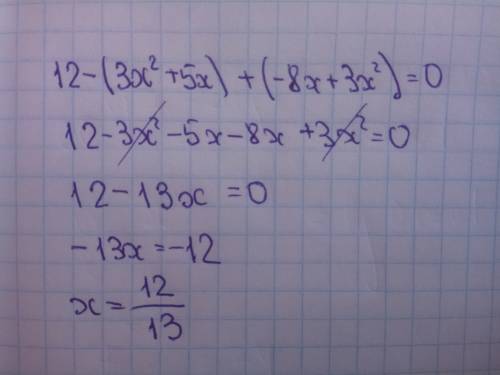 12-(3x²+5x)+(-8x+3x²)=0
12-3x²-5x-8x+3x²=0
12-13x=0
-13x=-12
x=12/13